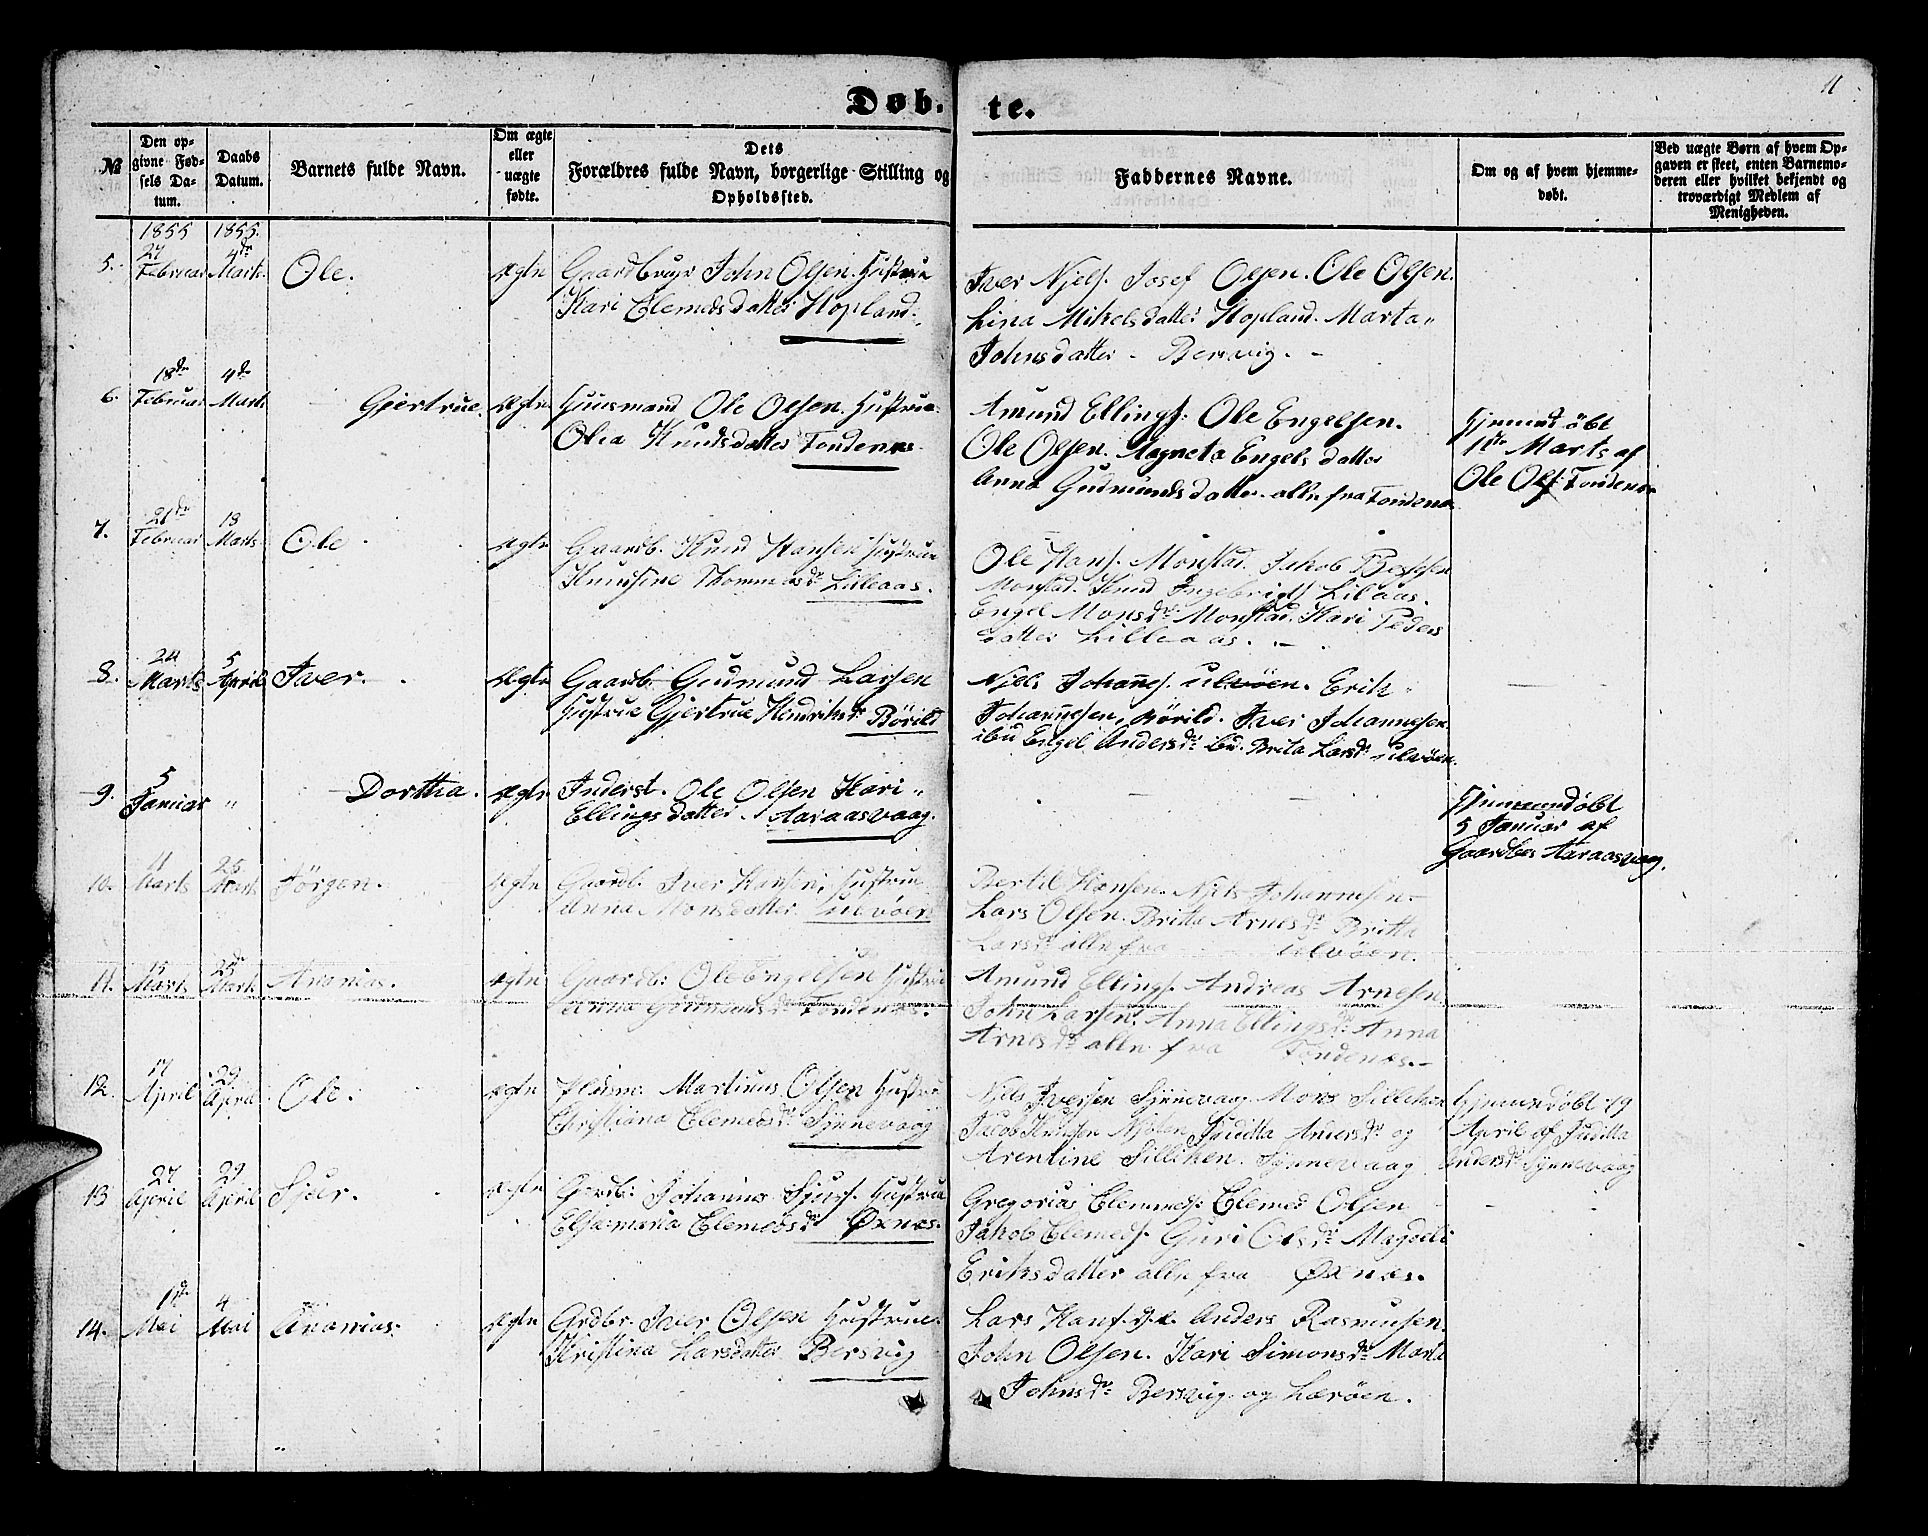 11
Døb. te.
№
Den op-
givne Fød-
sels Da-
tum.
Daabs
Datum.
Barnets fulde Navn.
Om ægte
eller
uægte
fødte.
Dets
Forældres fulde Navn, borgerlige Stilling og
Opholdssted.
Faddernes Navne.
Om og af hvem hjemme-
døbt.
Ved uægte Børn af hvem Op-
gaven er skeet, enten Barnemo-
deren eller hvilket bekjendt og
troværdigt Medlem af
Menigheden.
1855 1855.
5. 27 Februar 4de Marts Ole. Ægte Gaardbruger John Olsen. Hustrue
Kari Clemedsdatter Hopland.
Iver Njels. Josef Olsen. Ole Olsen.
Lina Mikelsdatter Hopland. Marta
Johnsdatter - Bersvig. -
6. 18de Februar 4de Marts Gjertrue. Ægte Huusmand Ole Olsen. Hustrue
Olia Knudsdatter Tondenes
Amund Ellings. Ole Engelsen.
Ole Olsen. Agneta Engelsdatter
Anna Gudmundsdatter alle fra Tondenes
Hjemmdøbt
1ste Marts af
Ole Ols. Tondenes
7. 21de Februar 18 Marts Ole Ægte Gaardb. Knud Hansen Hustrue
Knudsine Thommasdr Lilleaas.
Ole Hans. Monstad. Jakob
Monstad. Knud Ingebrigts Lilaas.
Engel Monsdr Monstad. Kari Peders
datter Lilleaas. -
8. 24 Marts 5 April Iver. Ægte Gaardb. Gudmund Larsen
Hustrue Gjertrue Hendriksdr Börild
Njels Johannes. Ulvöen. Erik
Johannesen, Börild. Iver Johannesen
ibd Engel Andersdr ibd. Brita Larsdr Ulvöen.
9. 5 Januar " Dorthea. Ægte Inderst. Ole Olsen Kari
Ellingsdatter. Aaraasvaag.
Hjemmendøbt
5 Januar af
Gaardbr Aaraasvaag.
10. 11 Marts 25 Marts Jörgen. Ægte Gaardb. Iver Hansen, Hustrue
Anna Monsdatter Ulvöen
Bertil Hansen. Njels Johannesen
Lars Olsen. Britta Arnesdr Britta
Larsdr alle fra Ulvöen.
11. 15 Marts 25de Marts Ananias. Ægte Gaardb: Ole Engelsen Hustrue
Anna Gudmundsdr Tondenes.
Amund Ellings. Andreas Arnesen
John Larsen. Anna Ellingsdr Anna
Arnesdr alle fra Tondenes.
12. 17 April 29 April Ole. Ægte Pladsm. Martinus Olsen Hustrue
Christiana Clemedsdr Synnevaag
Njels Iversen Synnevaag Mons Silliken
Jacob Knudsen Njolen Juditta Andersdr og
Arentine Silliken. Synnevaag
Hjemmendøbt 19
April af Juditta
Andersdr Synnevaag
13 27 April 29 April Sjur. Ægte Gardb. Johannes Sjurs. Hustrue
Elsamaria Clemedsdr Øxnes.
Gregorius Clemmeds. Clemed Olsen
Jakob Clemeds. Guri Olsdr Magdeli
Eriksdatter alle fra Øxnes.
14. 1ste Mai 4 Mai Ananias. Ægte Grdbr. Iver Olsen Hustrue
Kristina Larsdatter Bersvig
Lars Hans. Anders Rasmussen.
John Olsen. Kari Simonsdr Marta
Johnsdr Bersvig og Lærøen.